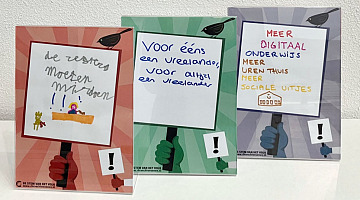 de
moeten
! ! !
!
Voor ééns
een vreelander,
voor altijd
een vreelander
!
MEER
DIGITAAL
ONDERWIJS
MEER
UREN THUIS
MEER
SOCIALE UITJES
!